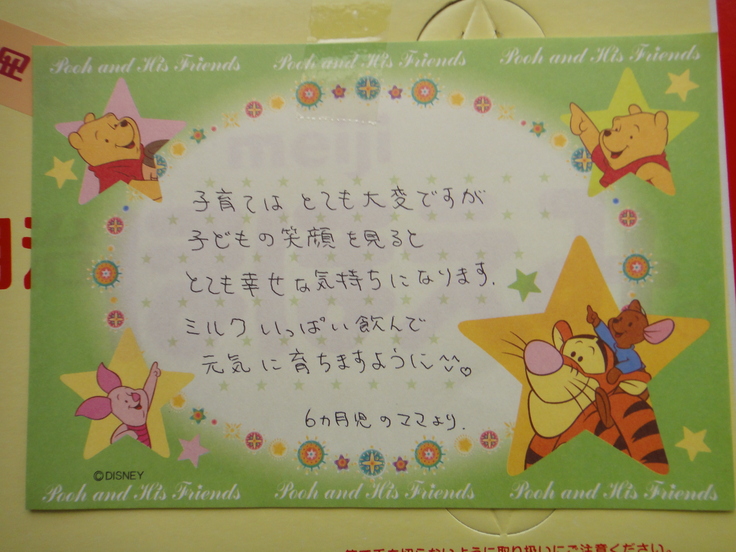 Pooh and His Friends Pooh and His Friends Pooh and His Friends
meiji
子育ては とても大変ですが
子どもの笑顔を見ると
とても幸せな気持ちになります.
ミルクいっぱい飲んで
元気に育ちますように
6ヵ月児のママより.
©DISNEY
Pooh and His Friends Pooh and His Friends Pooh and His Friends
手を切らないように取り扱いにご注意ください。